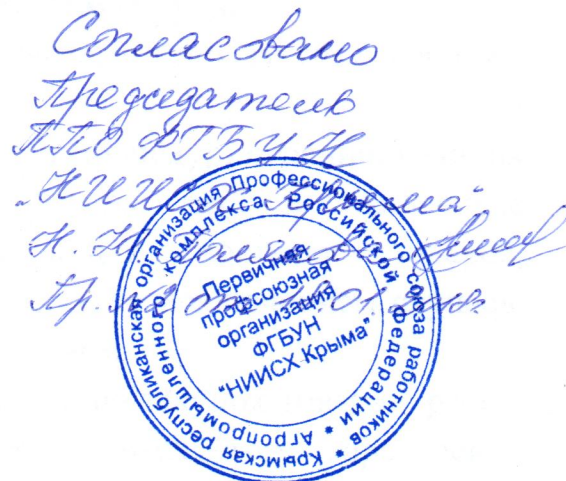 Согласовано
Председатель
ППО ФГБУН
"НИИСХ Крыма"
Н. Н.
Пр. № от 01. 2018г
Крымская республиканская организация Профессионального союза работников
Агропромышленного комплекса Российской Федерации
Первичная
профсоюзная
организация
ФГБУН
"НИИСХ Крыма"